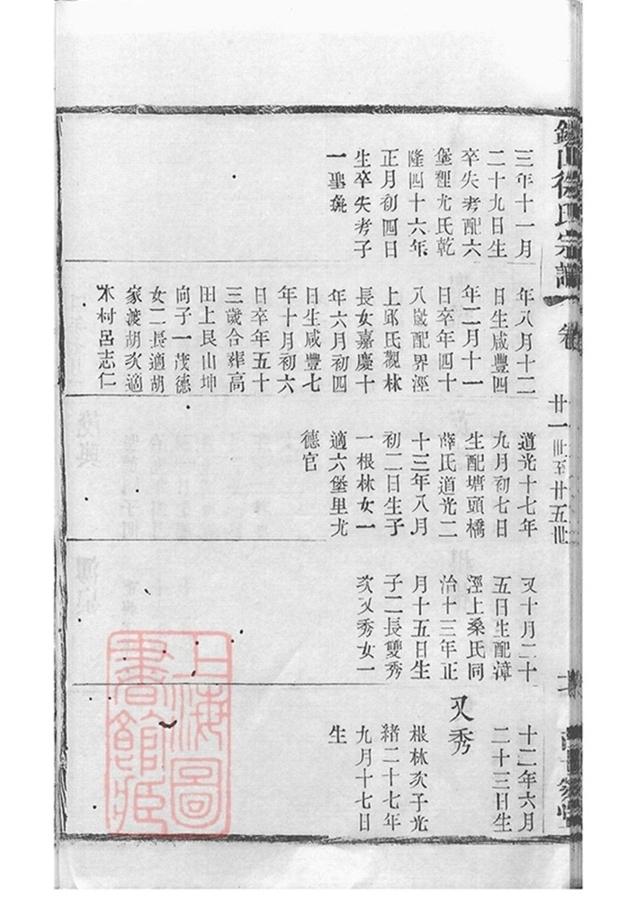 錫山徐氏宗譜
卷
廿一世至廿五世
三年十一月
二十九日生
卒失考配六
堡裡尤氏乾
隆四十六年
正月初四日
生卒失考子
一聖堯
年八月十二
日生咸豐四
年二月十一
日卒年四十
八歲配界涇
上邱氏觀林
長女嘉慶十
年六月初四
日生咸豐七
年十月初六
日卒年五十
三歲合葬高
田上艮山坤
向子一茂德
女二長適胡
家渡胡次適
水村呂志仁
道光十七年
九月初七日
生配塘頭橋
薛氏道光二
十三年八月
初二日生子
一根林女一
適六堡里尤
德官
又十月二十
五日生配漳
涇上桑氏同
治十三年正
月十五日生
子二長雙秀
次又秀女一
十二年六月
二十三日生
又秀
根林次子光
緒二十七年
九月十七日
生
上海圖
書館藏